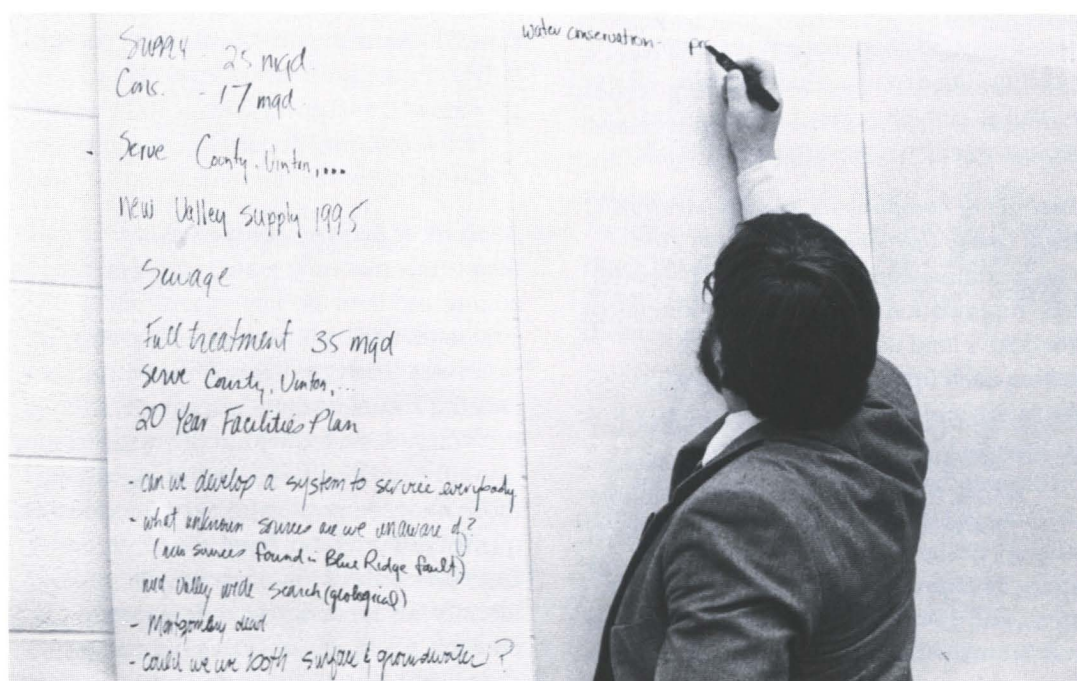 Supply - 25 mgd.
Cons. - 17 mgd.
Serve County, Vinton,...
new Valley supply 1995
Sewage
Full treatment 35 mgd
serve County, Vinton,...
20 Year Facilities Plan
- can we develop a system to service everybody
- what unknown sources are we unaware of?
(new sources found in Blue Ridge fault)
need valley wide search (geological)
- Montgomery dead
- could we use both surface & groundwater?
water conservation - pro